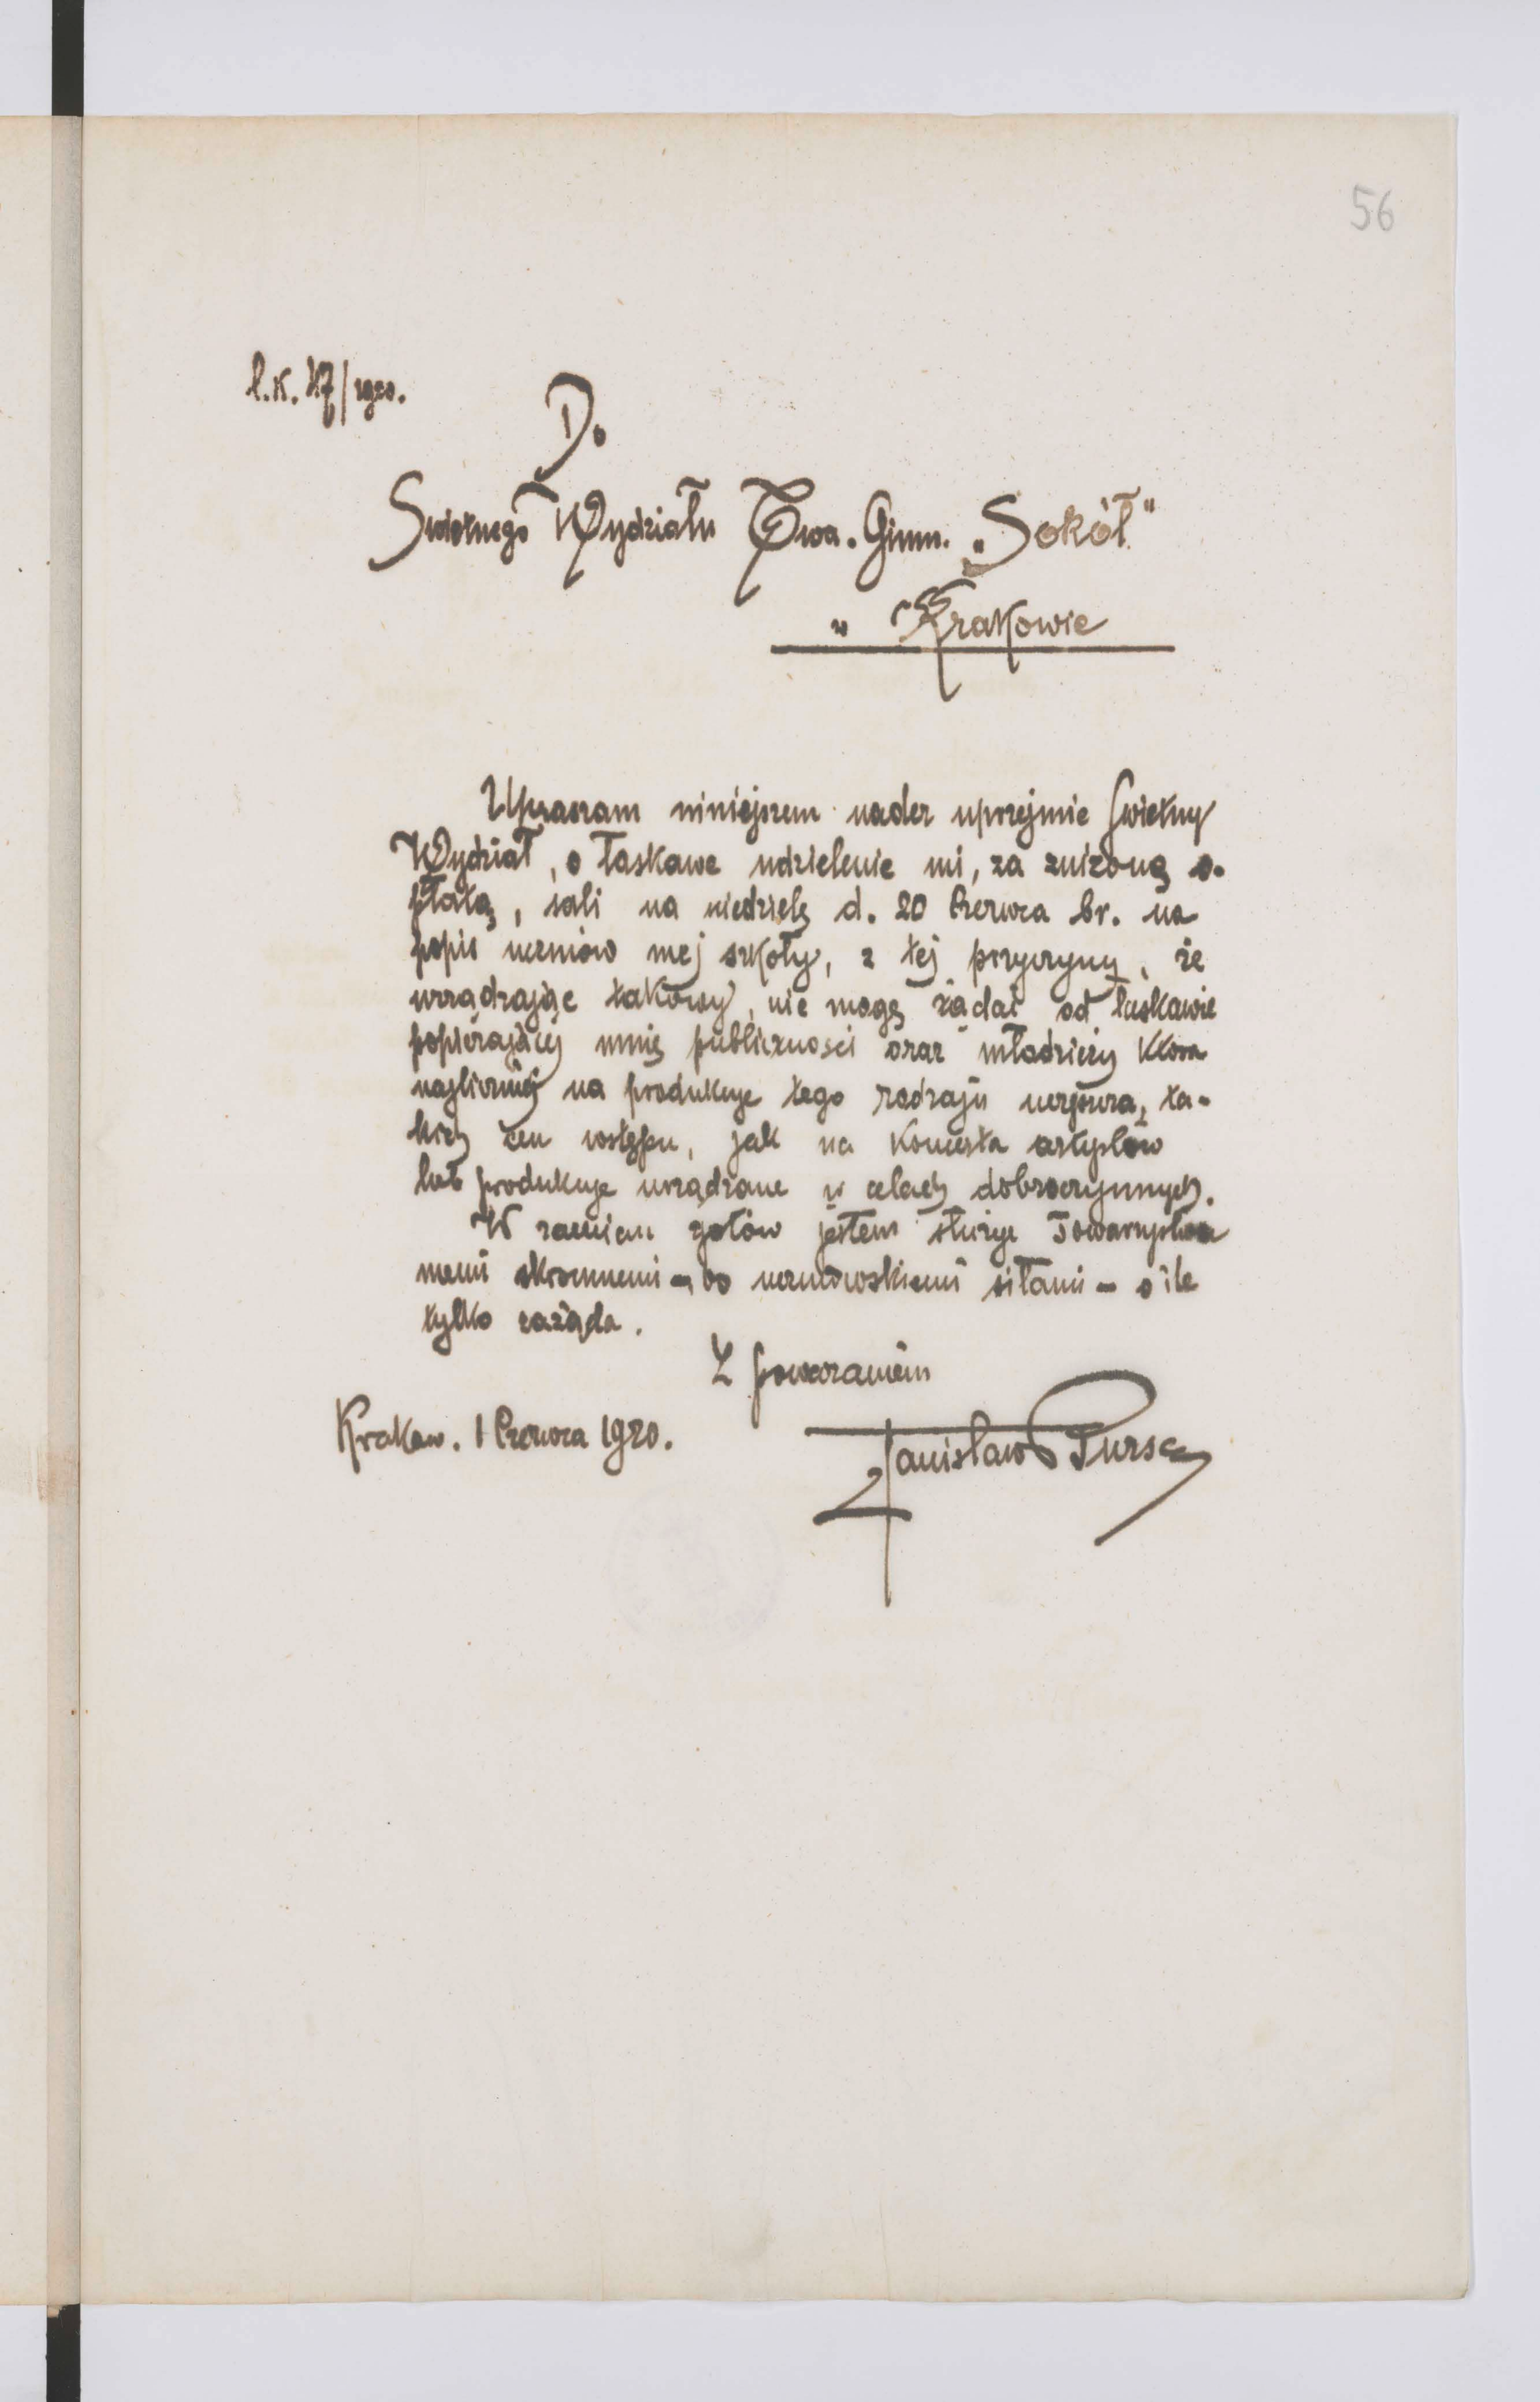 56
l.k. 47/1920.
Do
Świetnego Wydziału Twa. Gimn. „Sokół"
w Krakowie
Upraszam niniejszem nader uprzejmie Świetny
Wydział, o łaskawe udzielenie mi, za zniżoną o-
płatą, sali na niedzielę d. 20 Czerwca br. na
popis uczniów mej szkoły, z tej przyczyny, że
urządzając takowy, nie mogę żądać od łaskawie
popierającej mnie publiczności oraz młodzieży która
najliczniej na produkcje tego rodzaju uczęszcza, ta-
kich cen wstępu, jak na koncerta artystów
lub produkcje urządzane w celach dobroczynnych.
W zamian gotów jestem służyć Towarzystwu
memi skromnemi – bo uczniowskiemi siłami – o ile
tylko zażąda.
Z poważaniem
Kraków. 1 Czerwca 1920.
Stanisław Pursa